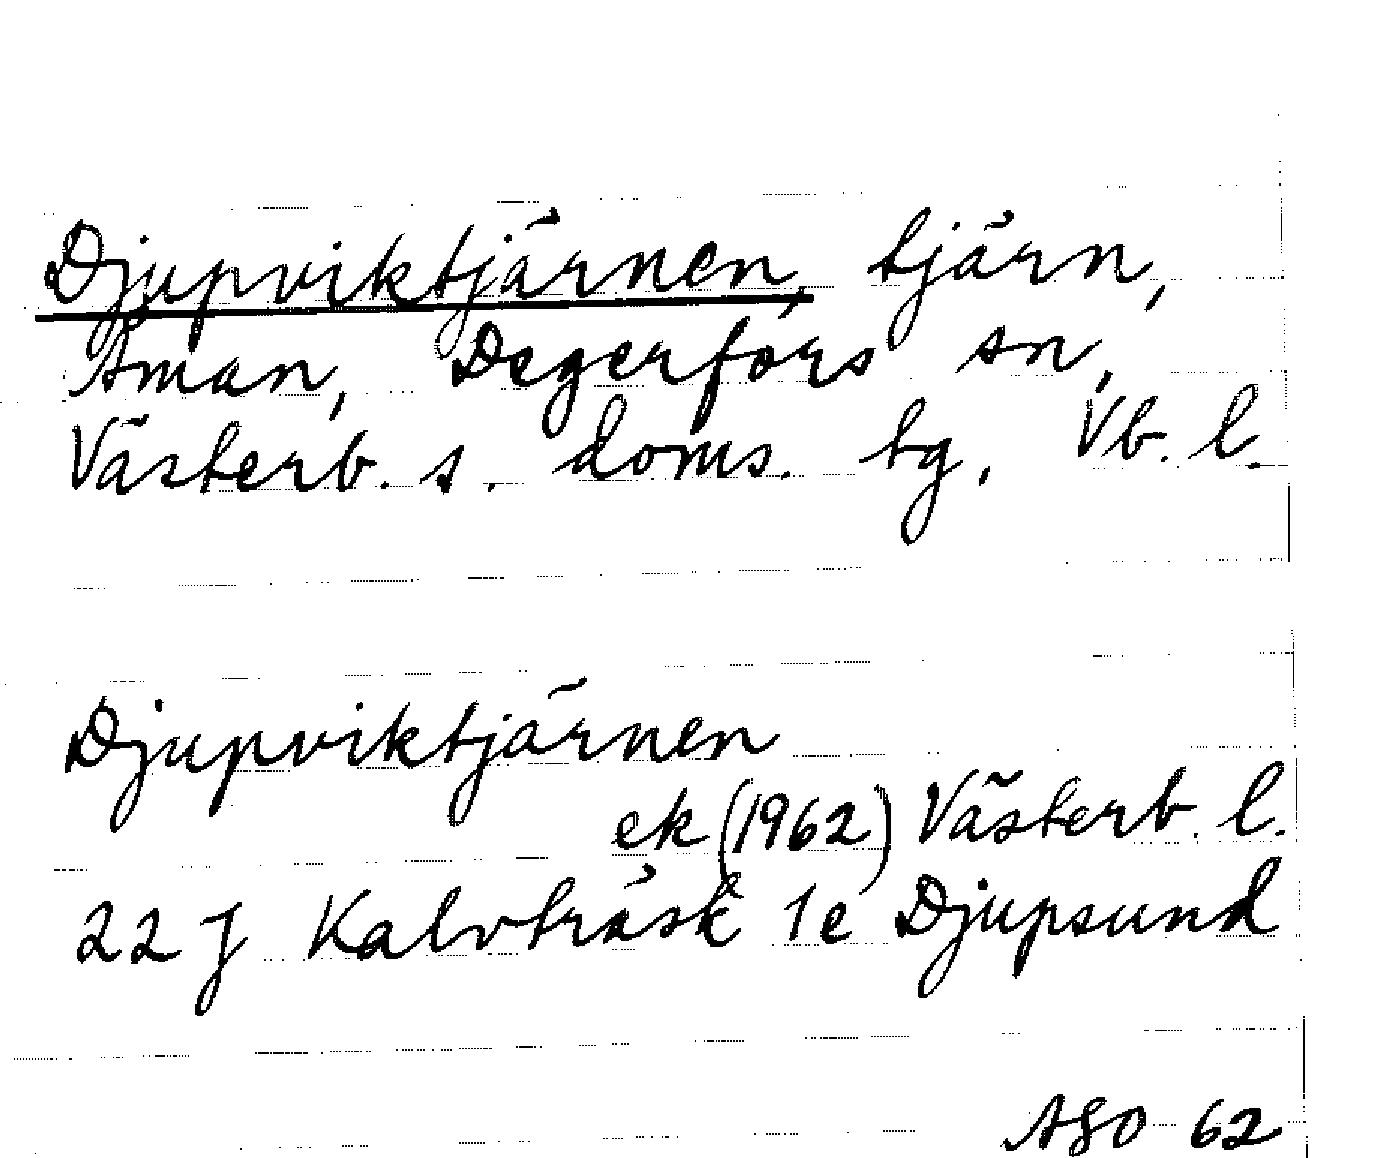 Djupviktjärnen, tjärn,
Åman, Degerfors sn,
Västerb. s. doms. tg, Vb. l.
Djupviktjärnen
ek (1962) Västerb. l.
22 J Kalvträsk 1e Djupsund
ASO 62